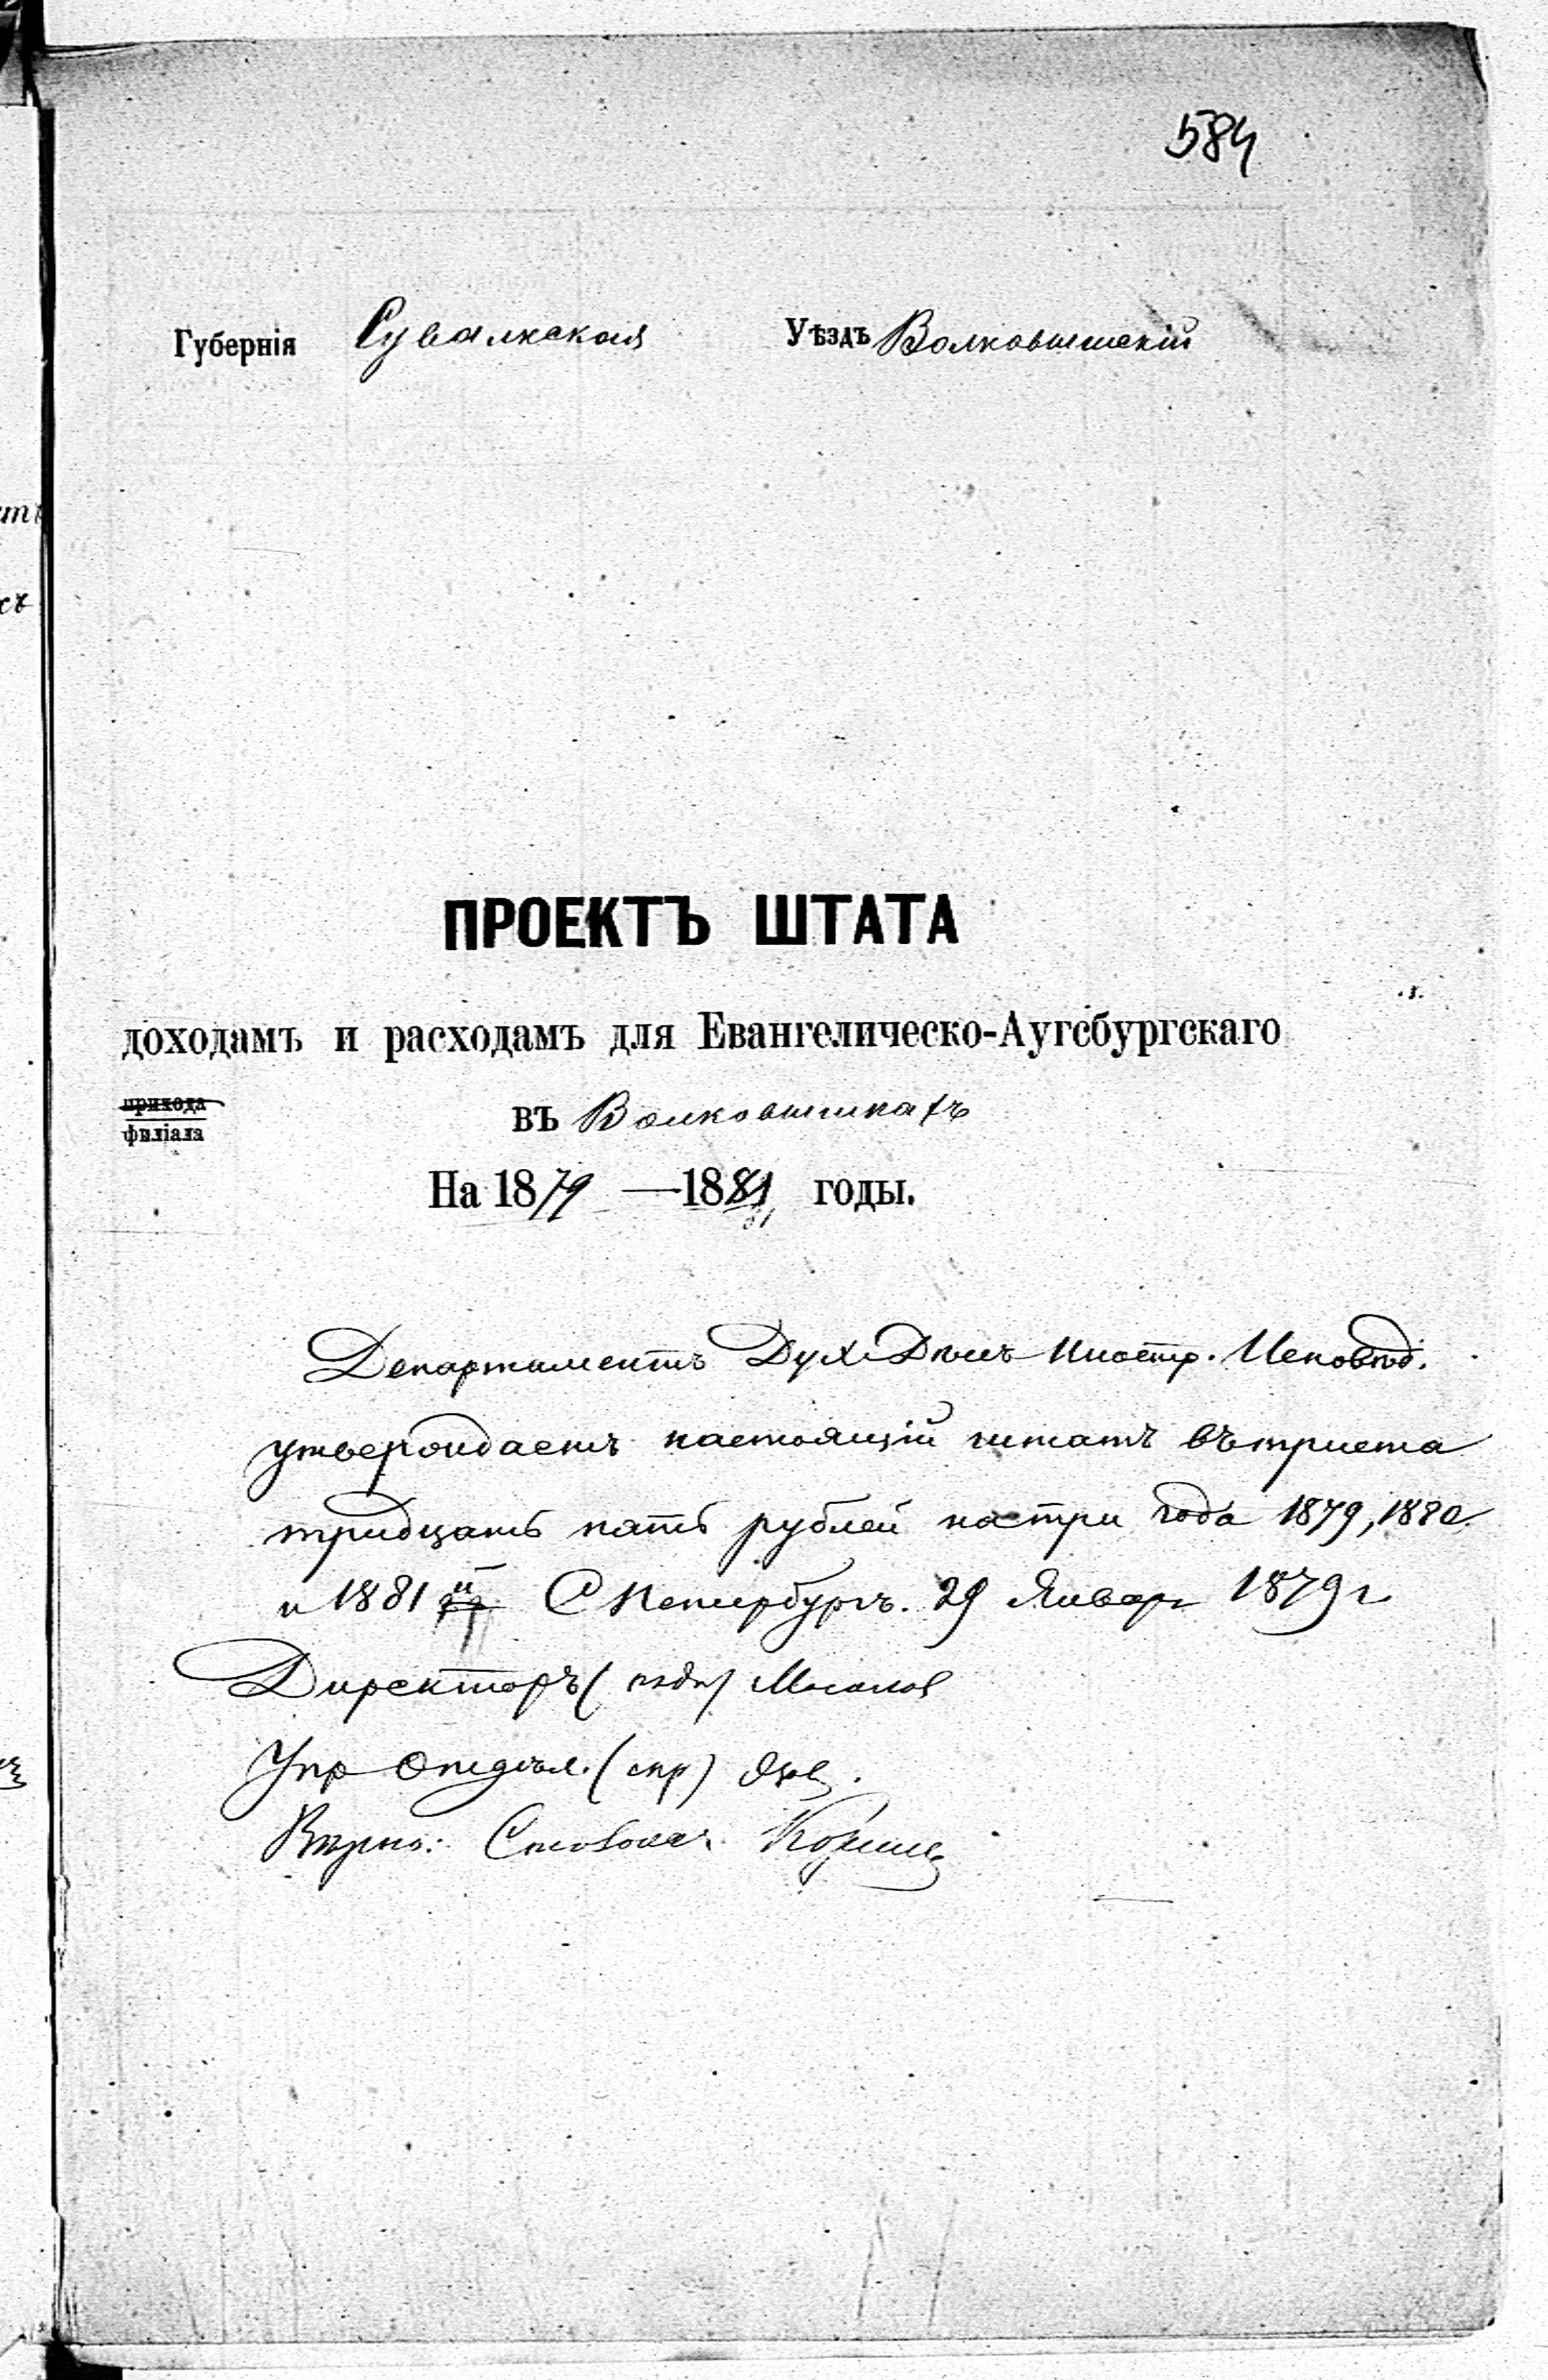 584
Губернія Сувалкская Уѣздъ Волковышскій
ПРОЕКТЪ ШТАТА
доходамъ и расходамъ для Евангелическо-Аугсбургскаго
прихода
филіала
въ Волковышкахъ
На 1879 — 1881 годы.
Департаментъ Дух. Дѣлъ Иностр. Исповѣд.
утверждаетъ настоящій штатъ въ триста
тридцать пять рублей на три года 1879, 1880
и 1881 С Петербургъ. 29 Января 1879 г
Директоръ (подп) Мосолов
Упр Отдѣл. (скр)
Вѣрно: